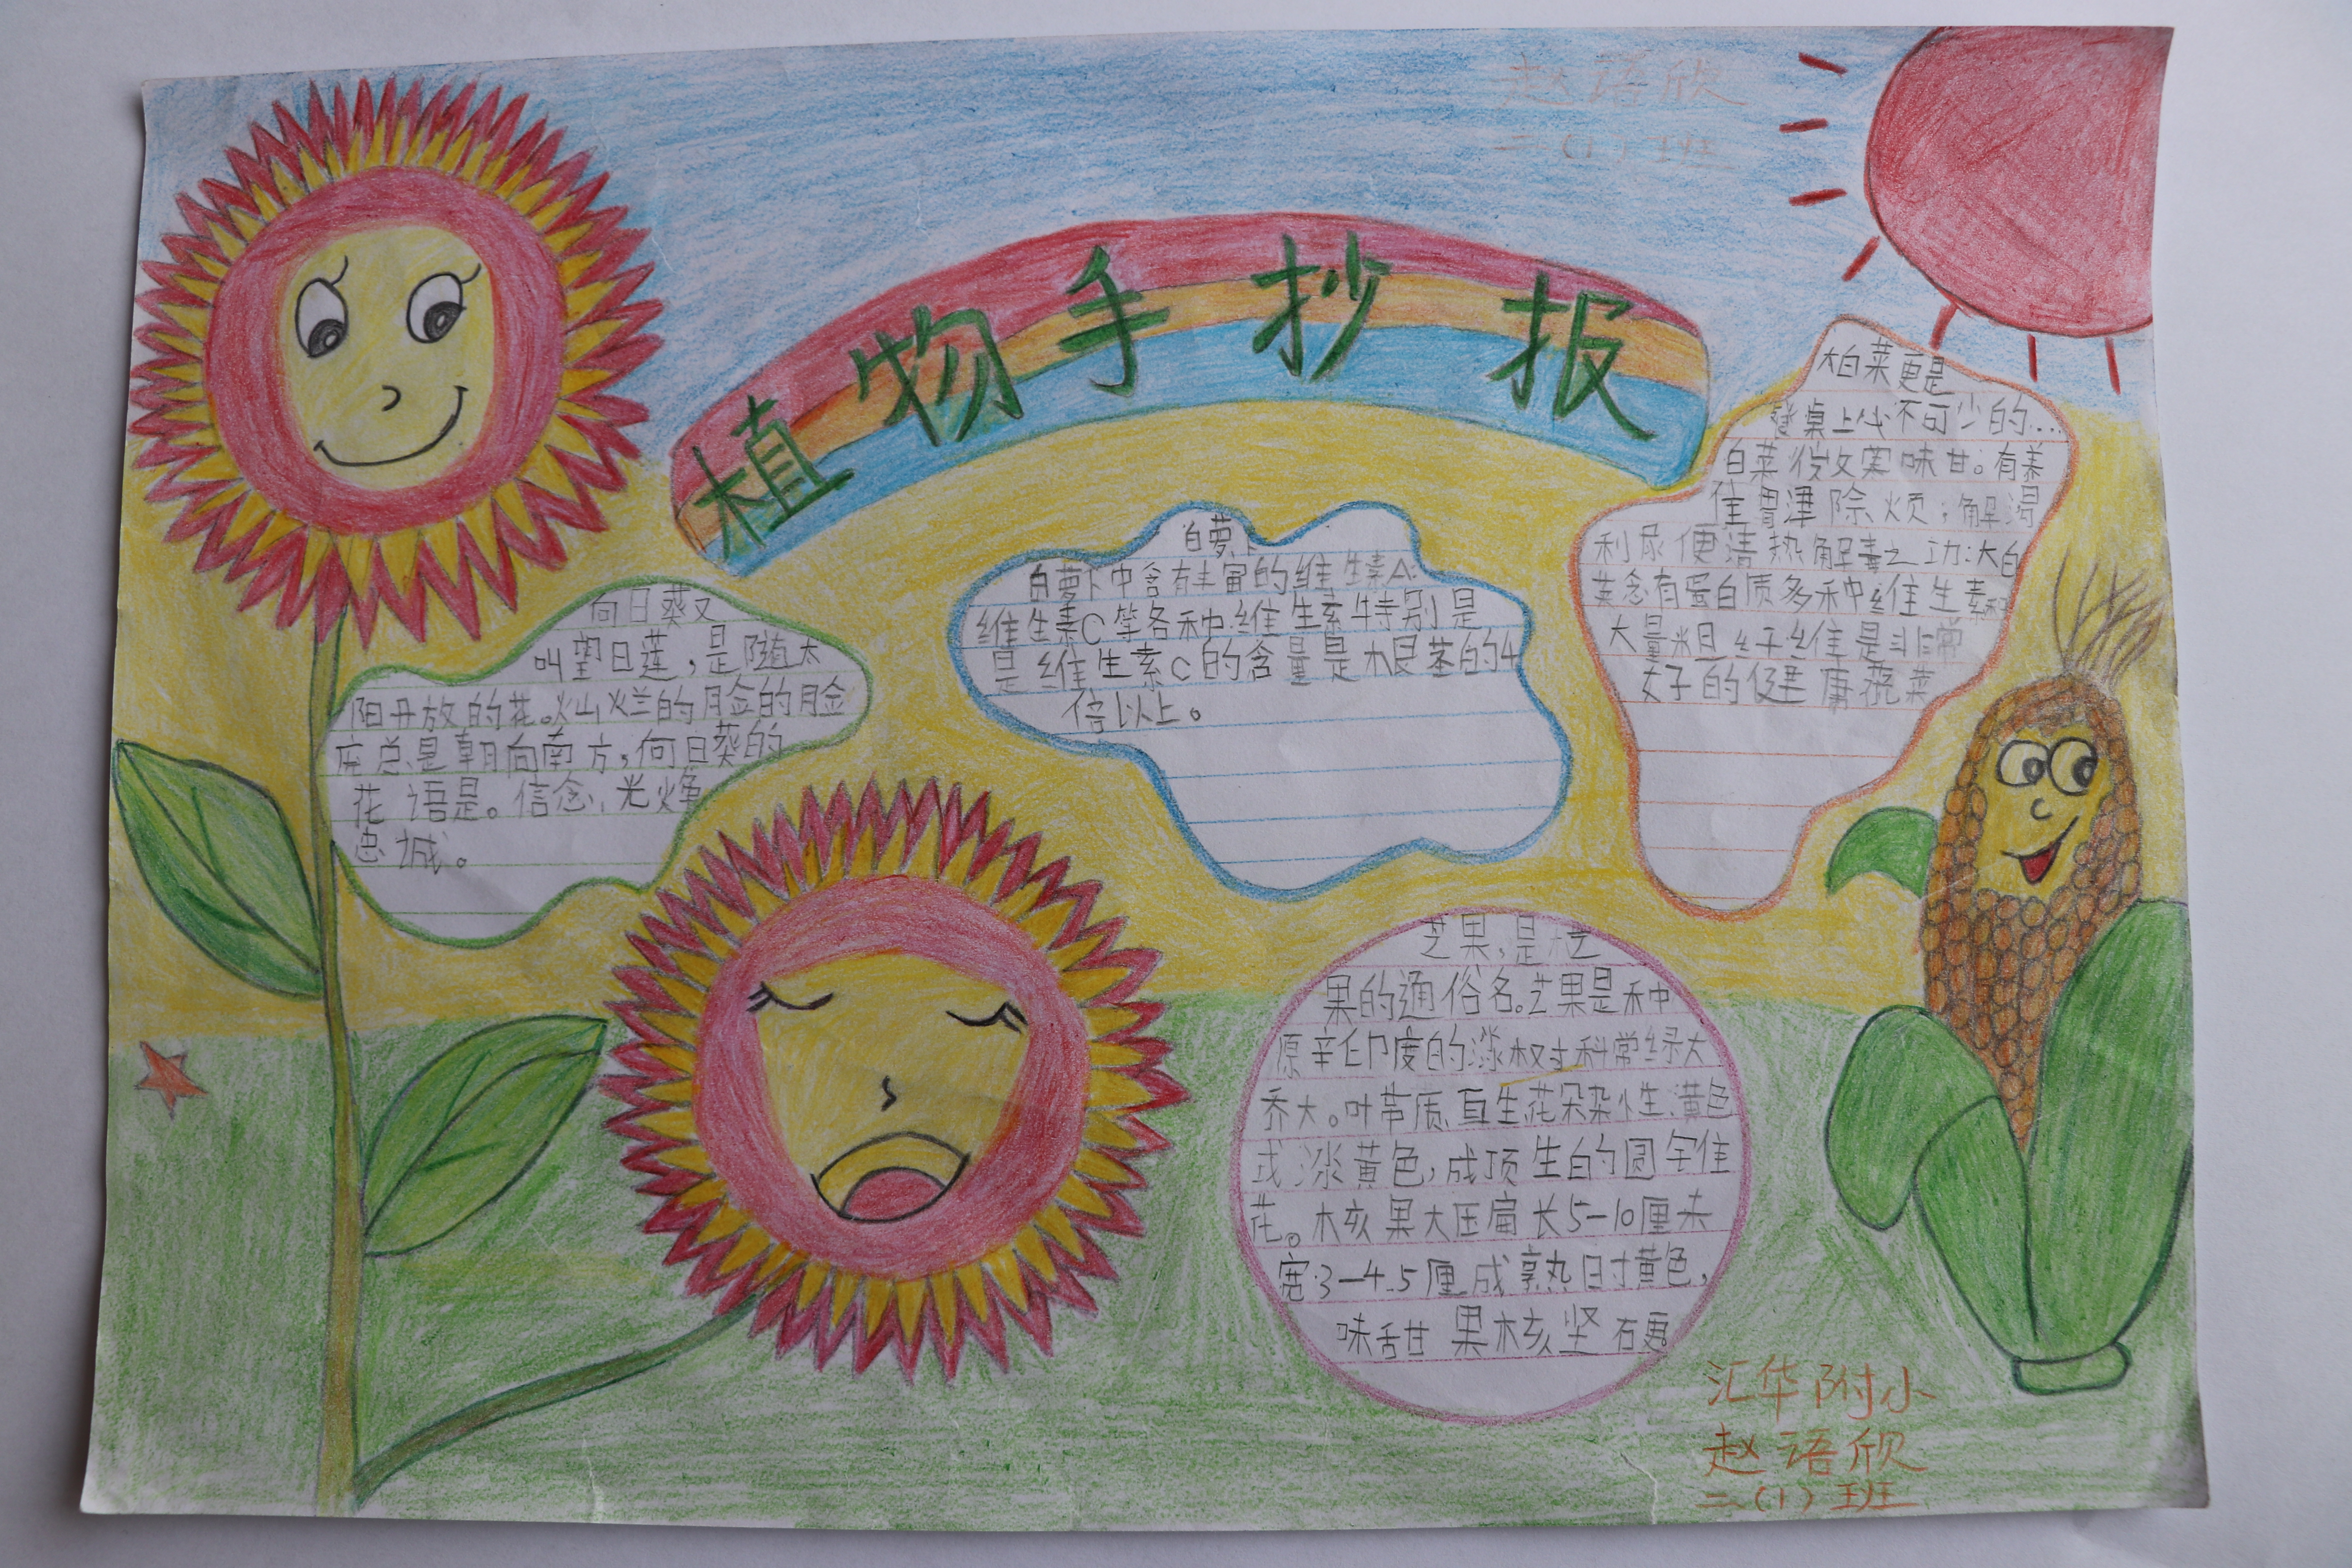 赵语欣
二(1)班
植物手抄报
向日葵又
叫望日莲，是随太
阳开放的花。灿烂的脸的脸
座总是朝向南方，向日葵的
花语是。信念、光
忠诚。
白萝卜
白萝卜中含有丰富的维生素A.
维生素C等各种维生素特别是
是维生素C的含量是根茎的4
倍以上。
大白菜更是
餐桌上必不可少的....
白菜 味甘。有养
胃津除烦；解渴
利尿便清热解毒之功:大白
菜含有蛋白质多种维生素和
大量粗纤维是非常
好的健康蔬菜
芝果，是芒
果的通俗名。芝果是种
原 印度的漆 科常绿大
乔大。叶带质直生花朵杂性黄色
或淡黄色，成顶生的圆
花。核果大压扁长5-10厘
宽3-4.5厘成熟时黄色，
味甜 果核坚
汇华附小
赵语欣
二(1)班